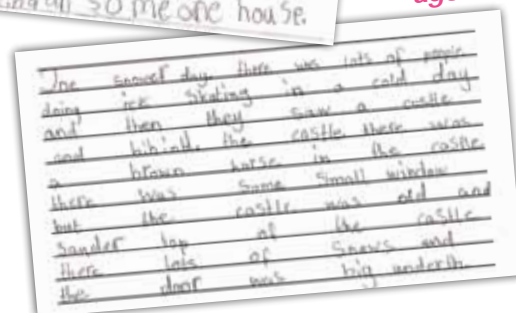 someone house.
One snower day there was lots of people
doing ice skating in a cold day
and then they saw a castle
and bihind the castle there was
a brown horse in the castle
there was some small window
but the castle was old and
sander top of the castle
there lots of snows and
the door was big underth.